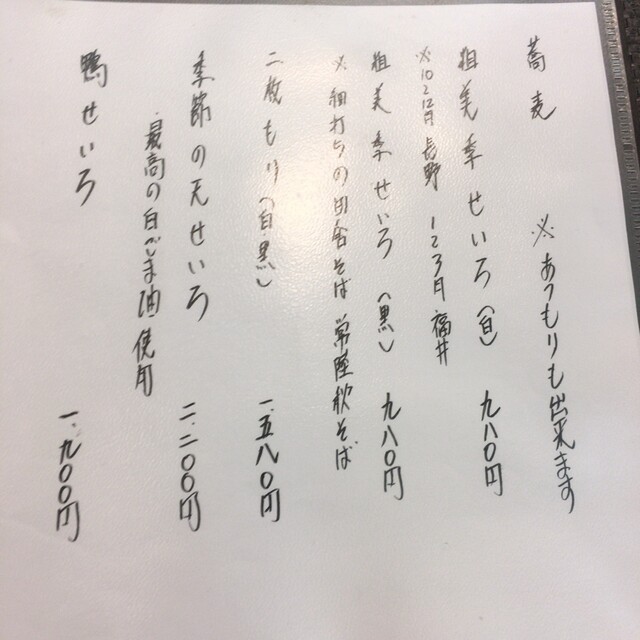 蕎麦 ※あつもりも出来ます
粗美季せいろ(白) 九八〇円
※10 2 12月 長野 1 2 3月 福井
粗美季せいろ(黒) 九八〇円
※細打ちの田舎そば 常陸秋そば
二枚もり(白黒) 一.五八〇円
季節の天せいろ 二.二〇〇円
・最高の白ごま油使用
鴨せいろ 一.九〇〇円